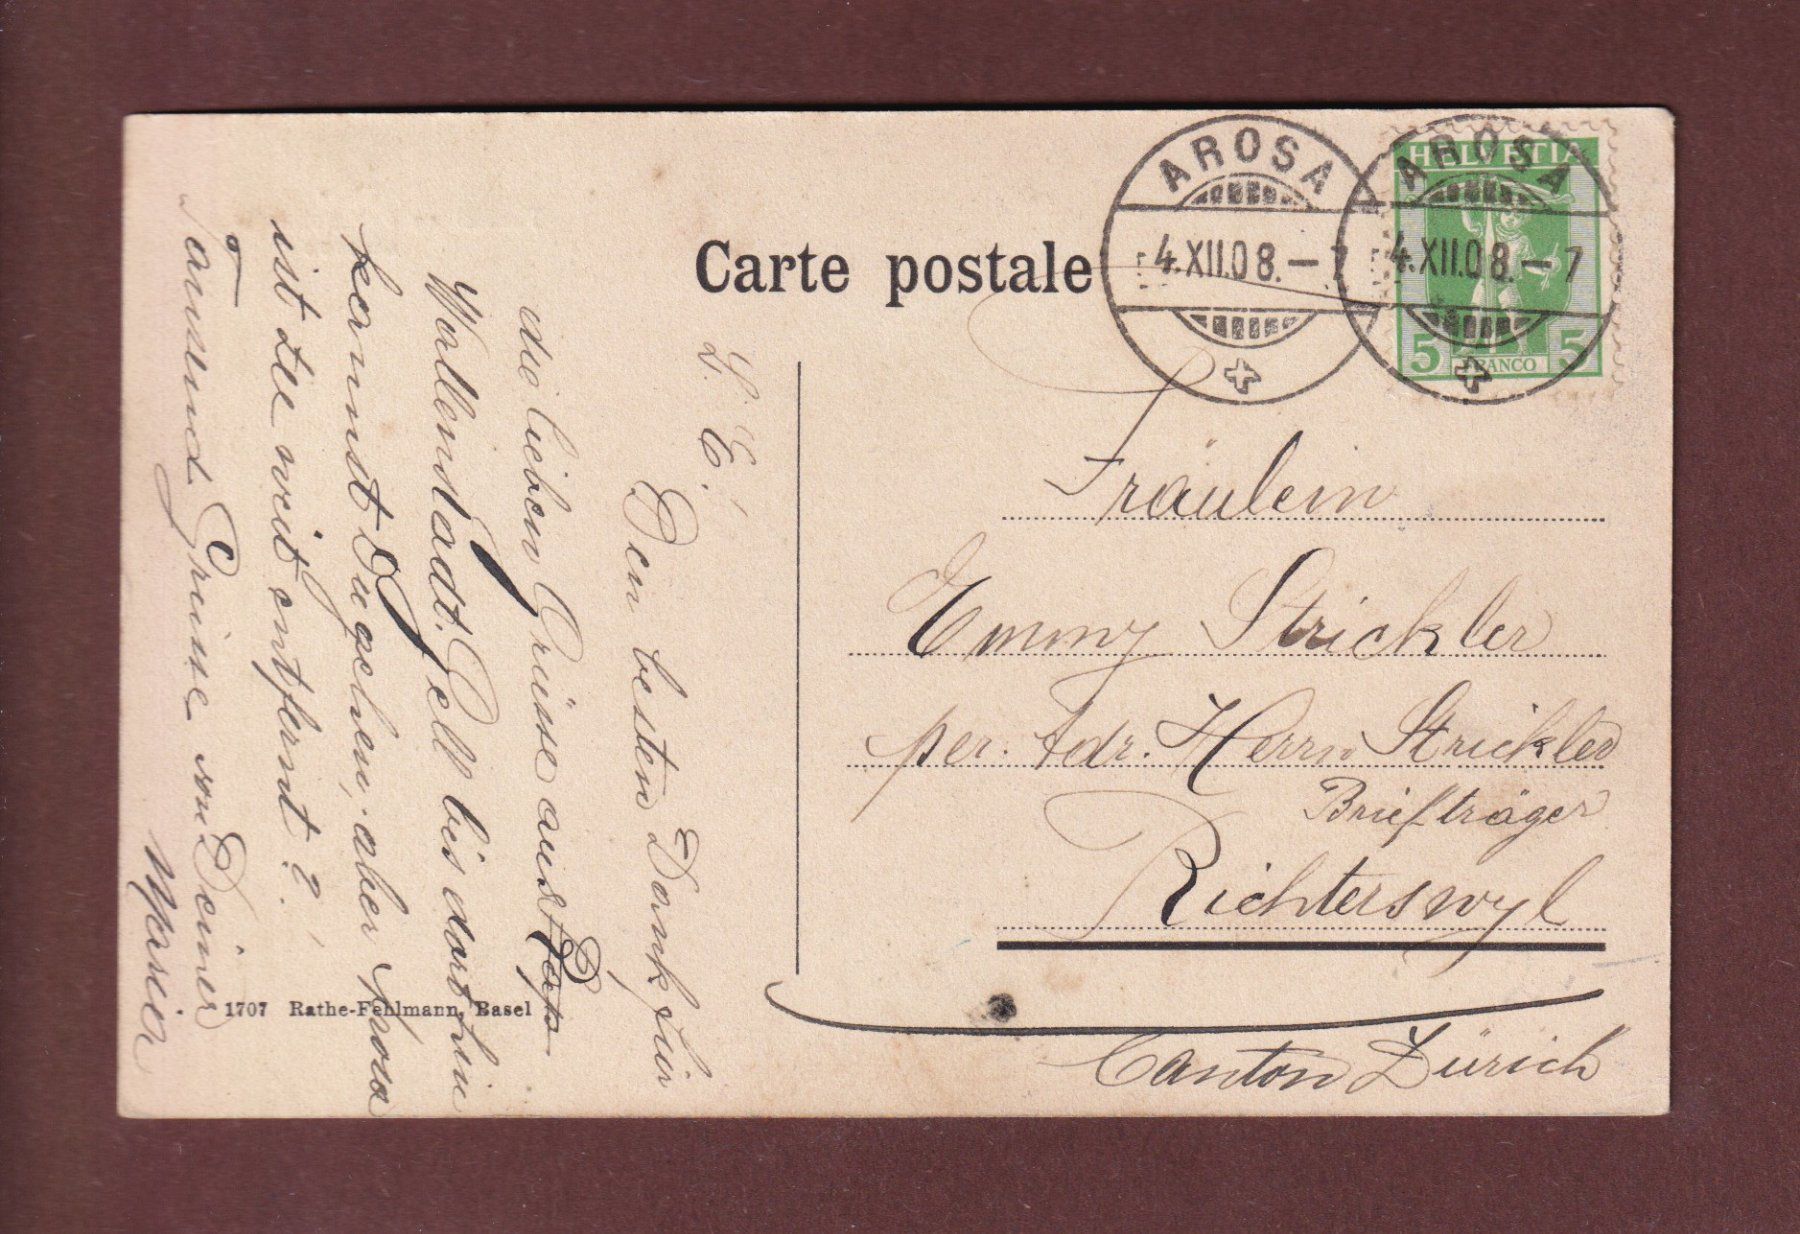 Carte postale
AROSA
4.XII.08.–7
AROSA
4.XII.08.–7
HELVETIA
5 FRANCO 5
L. E.!
Den besten Dank für
die lieben Grüsse aus
Wollenstadt. Gell bis dort hin
kannst Du gehen, aber Arosa
ist zu weit entfernt?!
Tausend Grüsse von Deiner
Fräulein
Emmy Strickler
per. Adr. Herrn Strickler
Briefträger
Richterswyl
Canton Zürich
1707 Rathe-Fehlmann, Basel